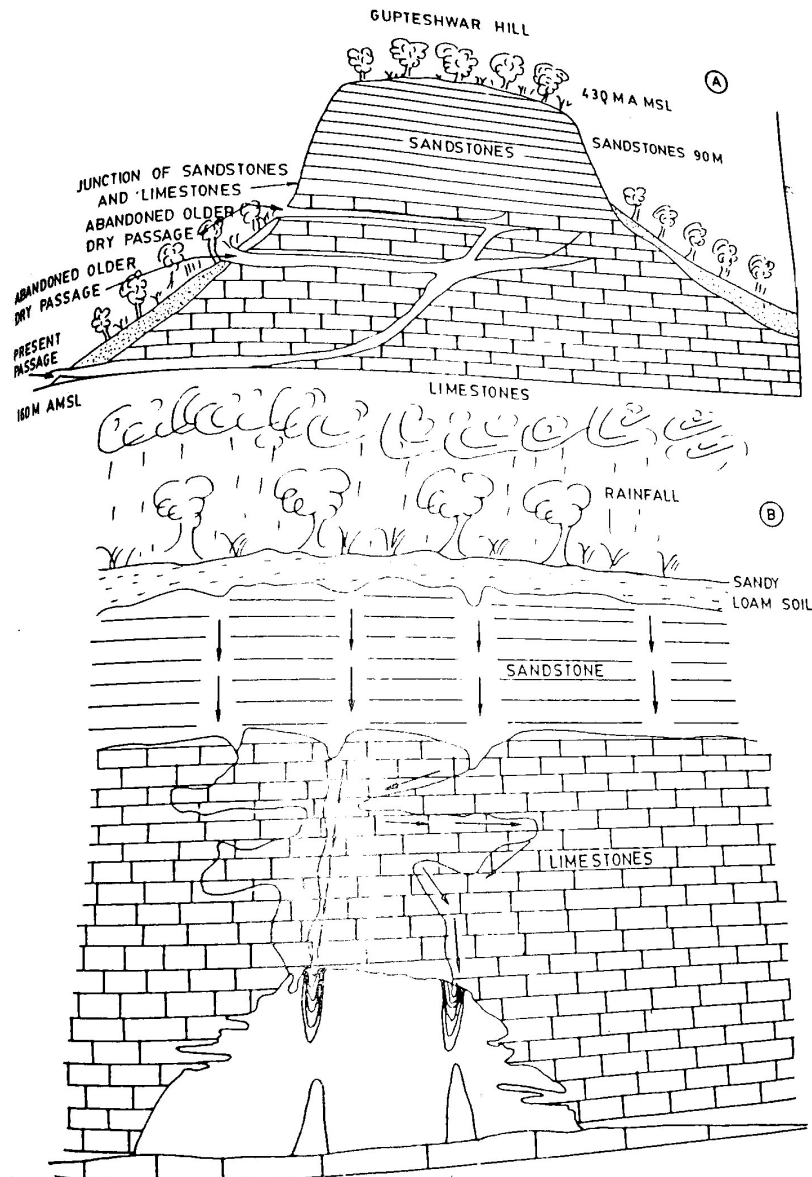 GUPTESHWAR HILL
A
430 M A MSL
SANDSTONES
SANDSTONES 90M
JUNCTION OF SANDSTONES
AND LIMESTONES
ABANDONED OLDER
DRY PASSAGE
ABANDONED OLDER
DRY PASSAGE
PRESENT
PASSAGE
160M AMSL
LIMESTONES
RAINFALL
B
SANDY
LOAM SOIL
SANDSTONE
LIMESTONES